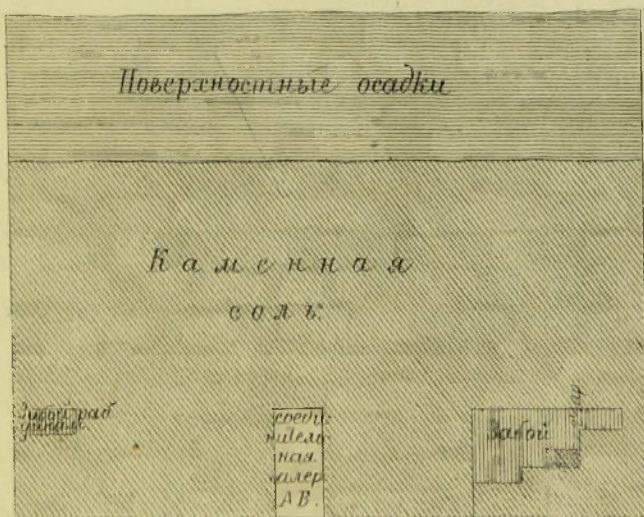 Поверхностные осадки
Каменная
соль.
Забой
соеди
нитель
ная
галер
АВ.